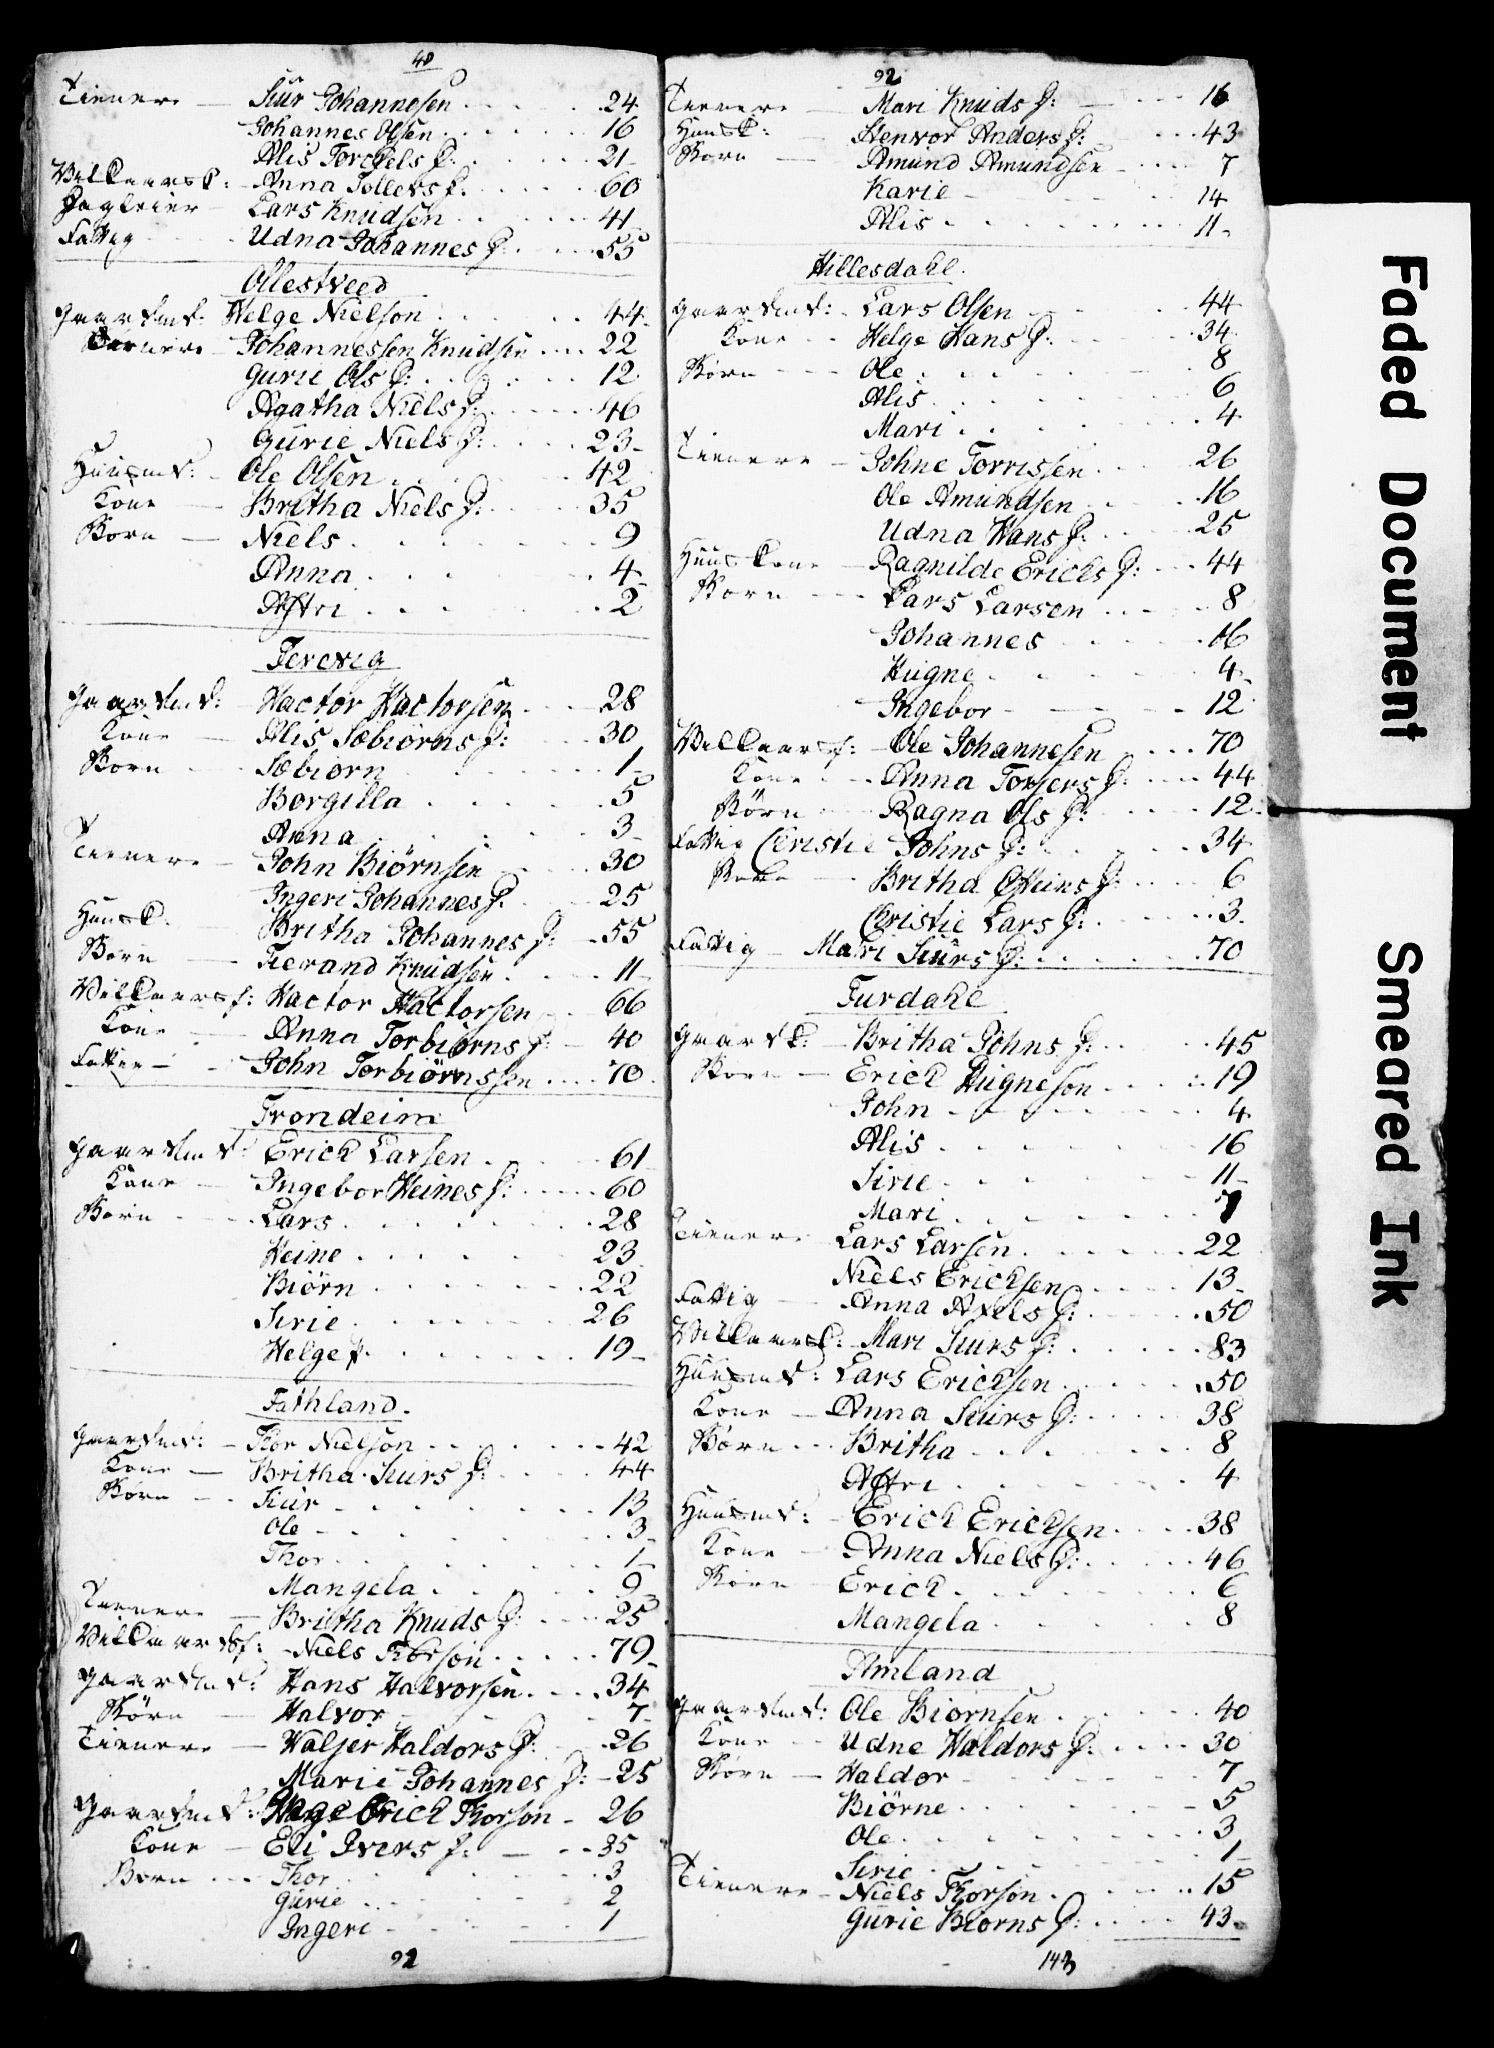 48
Tienere — Siur Johannesen 24
Johannes Olsen 16
Alis Torckels D: 21
Vilkaarsk: Anna Tollers D: 60
Dagleier Lars Knudsen 41
Fattig Udna Johannes D: 55
Ollestveed
Gaardmd: Helge Nielson 44
Tienere Johannessen Knudsen 22
Gurie Ols D: 12
Agatha Niels D: 46
Gurie Niels D: 23
Huusmd: Ole Olsen 42
Kone — Britha Niels D: 35
Børn — Niels 9
Anna 4
Astri 2
Terevig
Gaardmd: Hactor Hactorsen 28
Kone Alis Sæbiørns D: 30
Børn Sæbiørn 1
Borgilla 5
Anna 3
Tienere John Biørnsen 30
Ingeri Johannes D. 25
Huusk. Britha Johannes D: 55
Børn — Tierand Knudsen 11
Vilkaarsf: Hactor Hactorsen 66
Kone Anna Torbiørns D: 40
Fattig John Torbiørnssen 70
Trondeim
Gaardmd: Erick Larsen 61
Kone Ingebor Heines D: 60
Børn Lars 28
Heine 23
Biørn 22
Sirie 26
Helge 19
Fathland.
Gaardmd: Thor Nielson 42
Kone — Britha Siurs D: 44
Børn Siur 13
Ole 3
Thor 1
Mangela 9
Tienere — Britha Knuds D: 25
Vilkaarsf: Niels Thorson 79
Gaardmd: Hans Halvorsen 34
Børn — Halvor 7
Tienere — Walser Haldors D: 26
Marie Johannes D: 25
Gaardmd: Erick Thorson 26
Kone — Eli Ivers D: 35
Børn Thor 3
Gurie 2
Ingeri 1
92
92
Tienere Mari Knuds D: 16
Huusk: Stenvor Anders D: 43
Børn Amund Amundsen 7
Karie 14
Alis 11
Hillesdahl.
Gaardmd: Lars Olsen 44
Kone Helge Hans D: 34
Børn Ole 8
Alis 6
Mari 4
Tienere — Johne Torrissen 26
Ole Amundsen 16
Udna Hans D: 25
Huuskone Ragnilde Ericks D: 44
Børn Lars Larsen 8
Johannes 16
Hugne 4
Ingebor 12
Vilkaarsf: Ole Johannesen 70
Kone Anna Torgers D: 44
Børn Ragna Ols D: 12
Fattig Christie Johns D: 34
Børn Britha D: 6
Christie Lars D: 3
Fattig — Mari Siurs D: 70
Furdahl
Gaardk: Britha Johns D: 45
Børn — Erick Hugneson 19
John 4
Alis 16
Sirie 11
Mari 7
Tienere Lars Larsen 22
Niels Ericksen 13
Fattig — Anna Axels D: 50
Vilkaarsk: Mari Siurs D: 83
Huusmd: Lars Ericksen 50
Kone — Anna Siurs D: 38
Børn Britha 8
Astri 4
Huusmd: Erick Ericksen 38
Kone — Anna Niels D: 46
Børn — Erick 6
Mangela 8
Amland
Gaardmd: Ole Biørnsen 40
Kone Udne Haldors D: 30
Børn — Haldor 7
Biörne 5
Ole 3
Sirie 1
Tienere — Niels Thorson 15
Gurie Biørns D: 43
143
Faded Document
Smeared Ink